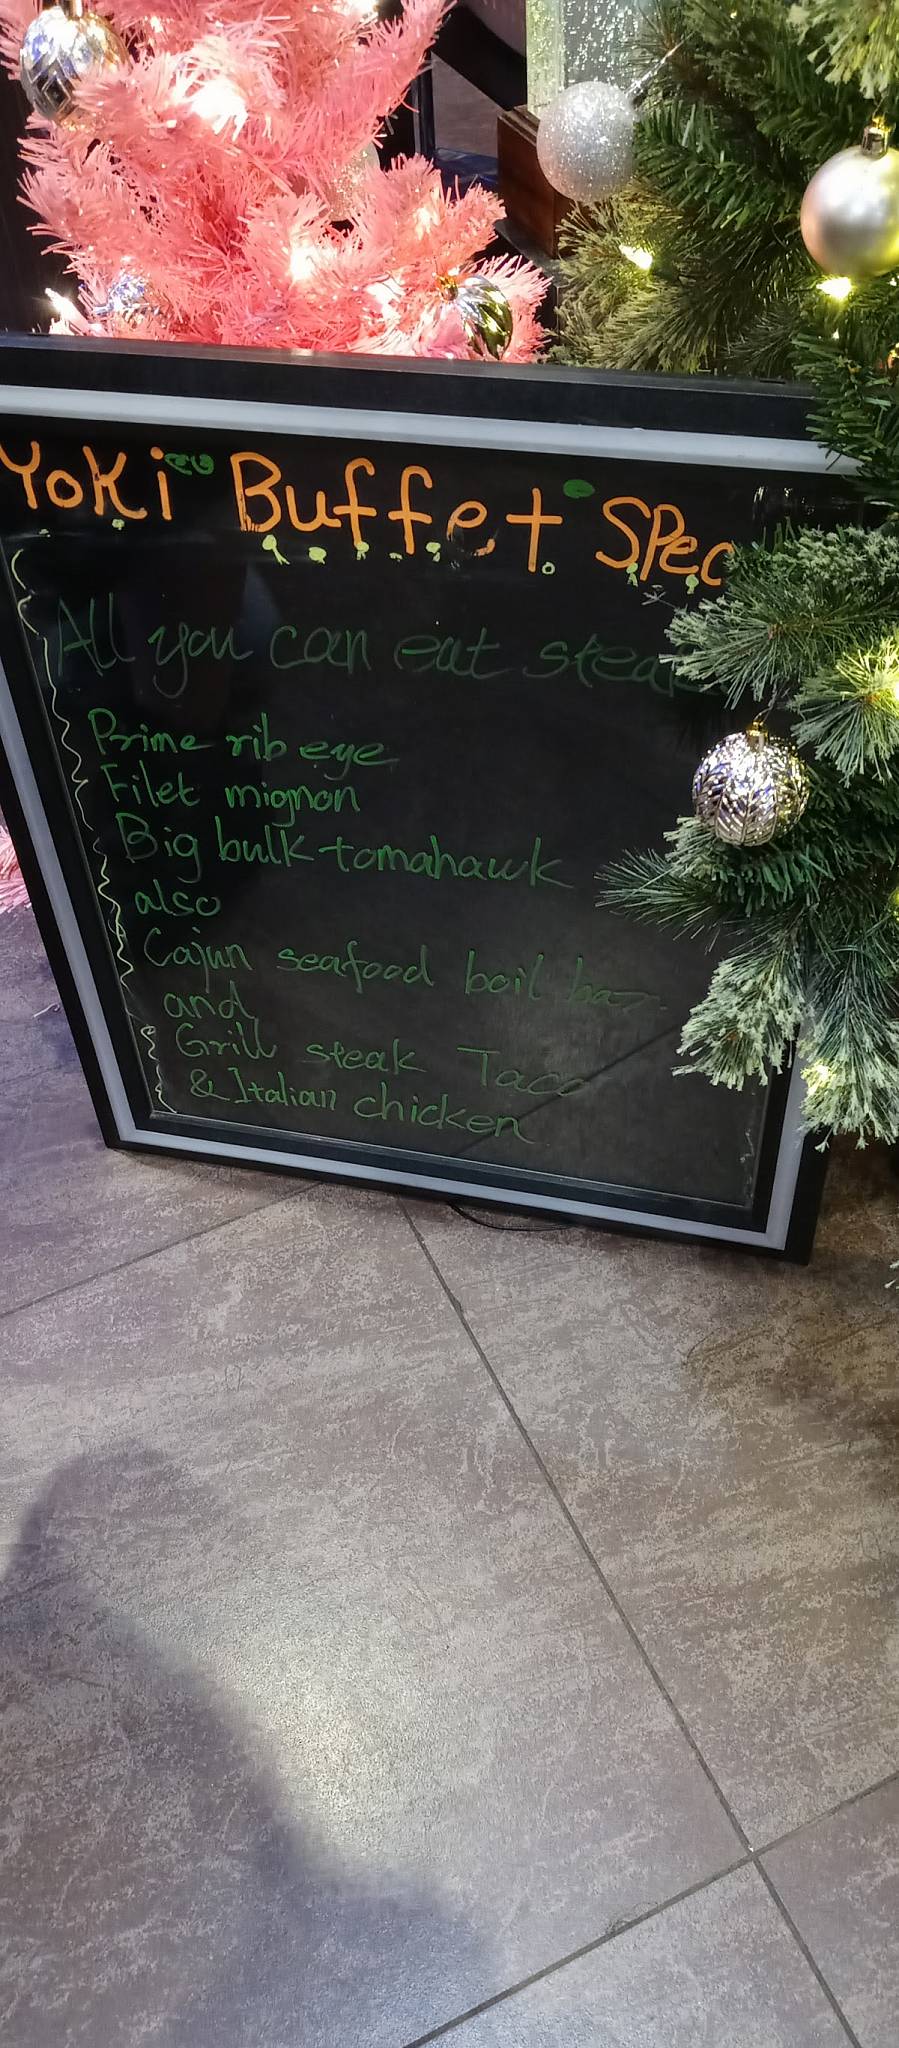 Yoki Buffet Spec
All you can eat steak
Prime rib eye
Filet mignon
Big bulk tomahawk
also
Cajun seafood boil bar
and
Grill steak Taco
& Italian chicken